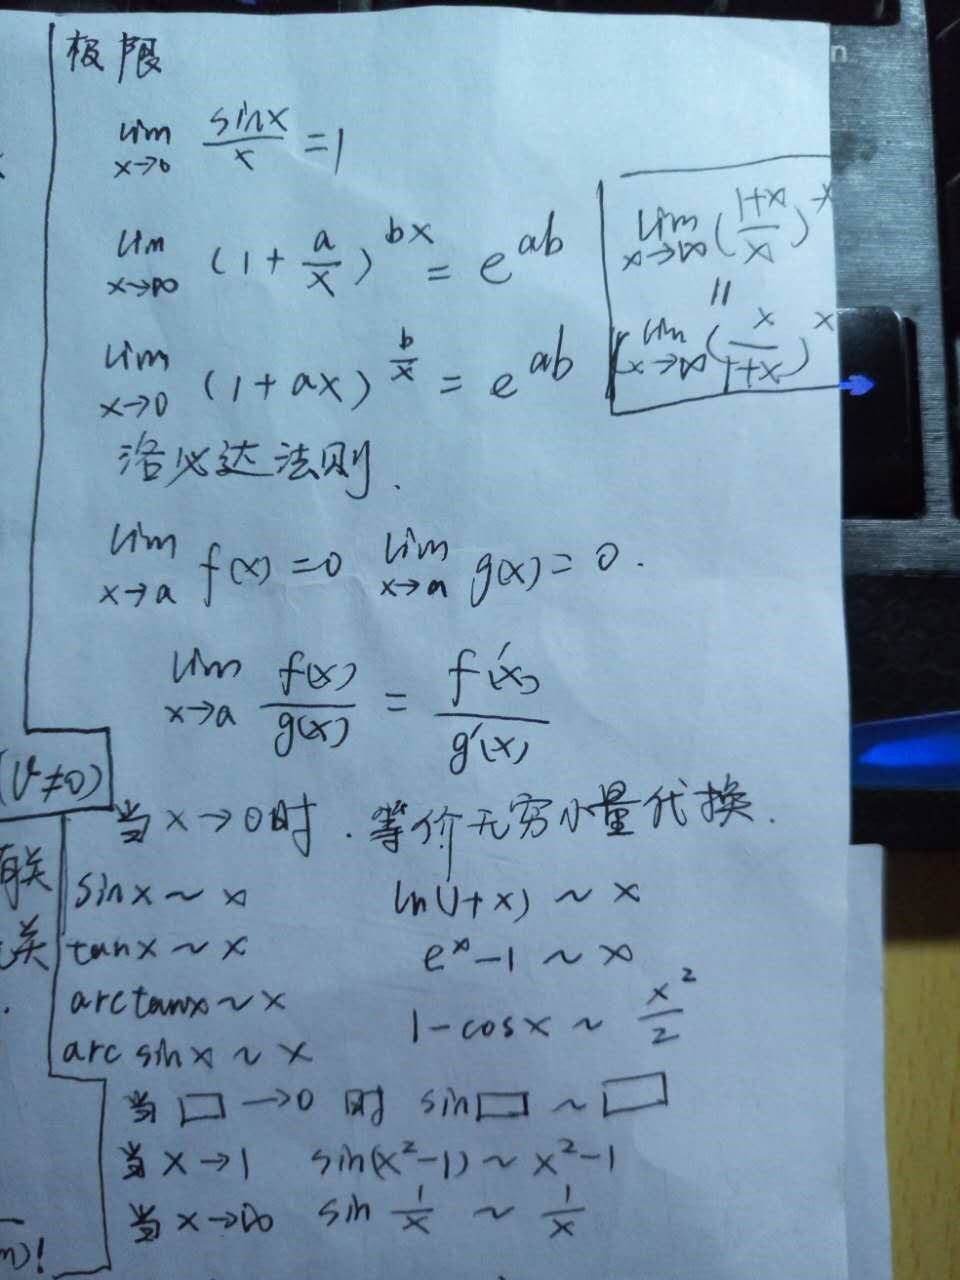 极限
lim x→0 sinx/x = 1
lim x→∞ (1 + a/x)^bx = e^ab
lim x→∞ (1+x/x)^x
=
lim x→∞ (x/1+x)^x
lim x→0 (1 + ax)^b/x = e^ab
洛必达法则.
lim x→a f(x) = 0 lim x→a g(x) = 0.
lim x→a f(x)/g(x) = f'(x)/g'(x)
(v≠0)
当 x→0时. 等价无穷小量代换.
有关
sinx ~ x ln(1+x) ~ x
关
tanx ~ x e^x-1 ~ x
arctanx ~ x 1-cosx ~ x²/2
arcsinx ~ x
当 □→0 时 sin□ ~ □
当 x→1 sin(x²-1) ~ x²-1
当 x→∞ sin 1/x ~ 1/x
)!